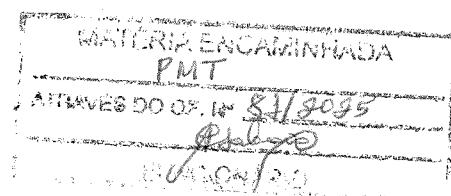 MATÉRIA ENCAMINHADA
PMT
ATRAVÉS DO OF. Nº 87/2025